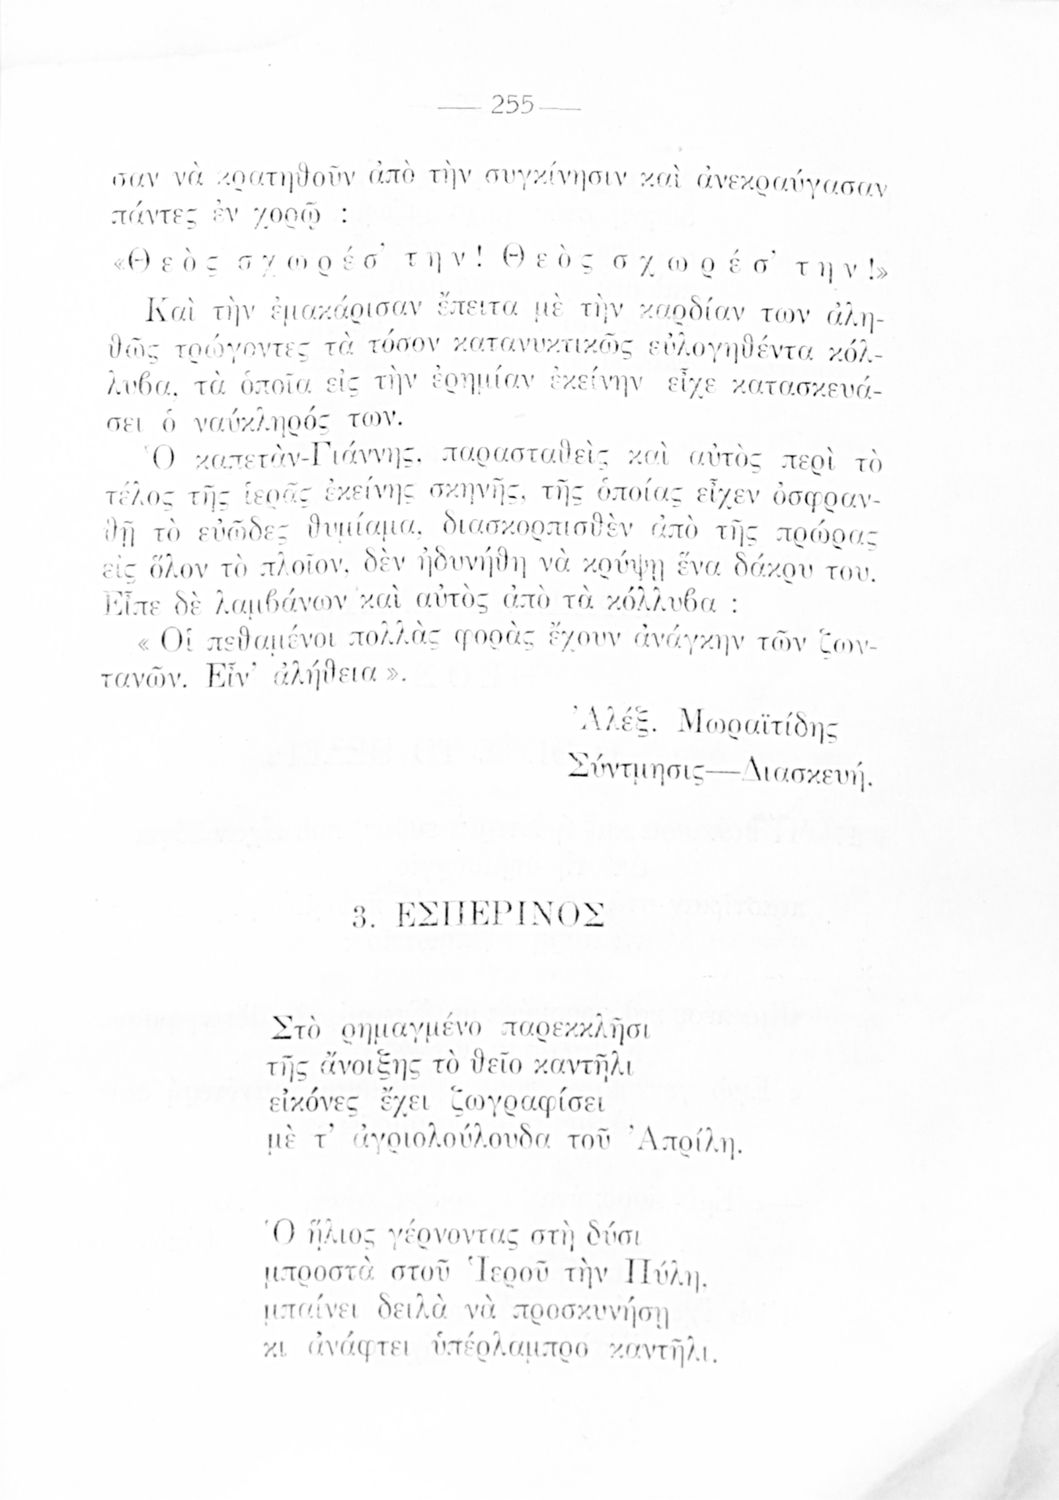 — 255 —
σαν νὰ κρατηθοῦν ἀπὸ τὴν συγκίνησιν καὶ ἀνεκραύγασαν
πάντες ἐν χορῷ :
«Θεὸς σχωρέσ' την! Θεὸς σχωρέσ' την!»
Καὶ τὴν ἐμακάρισαν ἔπειτα μὲ τὴν καρδίαν των ἀλη-
θῶς τρώγοντες τὰ τόσον κατανυκτικῶς εὐλογηθέντα κόλ-
λυβα, τὰ ὁποῖα εἰς τὴν ἐρημίαν ἐκείνην εἶχε κατασκευά-
σει ὁ ναύκληρός των.
Ὁ καπετὰν-Γιάννης, παρασταθεὶς καὶ αὐτὸς περὶ τὸ
τέλος τῆς ἱερᾶς ἐκείνης σκηνῆς, τῆς ὁποίας εἶχεν ὀσφραν-
θῆ τὸ εὐῶδες θυμίαμα, διασκορπισθὲν ἀπὸ τῆς πρώρας
εἰς ὅλον τὸ πλοῖον, δὲν ἠδυνήθη νὰ κρύψῃ ἕνα δάκρυ του.
Εἶπε δὲ λαμβάνων καὶ αὐτὸς ἀπὸ τὰ κόλλυβα :
« Οἱ πεθαμένοι πολλὰς φορὰς ἔχουν ἀνάγκην τῶν ζων-
τανῶν. Εἶν' ἀλήθεια ».
Ἀλέξ. Μωραϊτίδης
Σύντμησις—Διασκευή.
3. ΕΣΠΕΡΙΝΟΣ
Στὸ ρημαγμένο παρεκκλῆσι
τῆς ἄνοιξης τὸ θεῖο καντῆλι
εἰκόνες ἔχει ζωγραφίσει
μὲ τ' ἀγριολούλουδα τοῦ Ἀπρίλη.
Ὁ ἥλιος γέρνοντας στὴ δύσι
μπροστὰ στοῦ Ἱεροῦ τὴν Πύλη,
μπαίνει δειλὰ νὰ προσκυνήσῃ
κι ἀνάφτει ὑπέρλαμπρο καντῆλι.